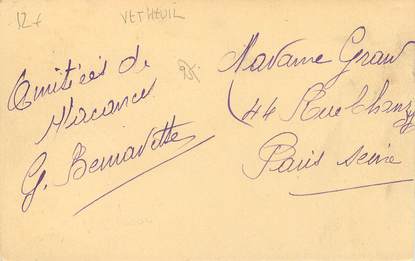 12f
VETHEUIL
Amitiées de
Vacances
G. Bernadette
Madame Graw
44 Rue Chanzy
Paris Seine